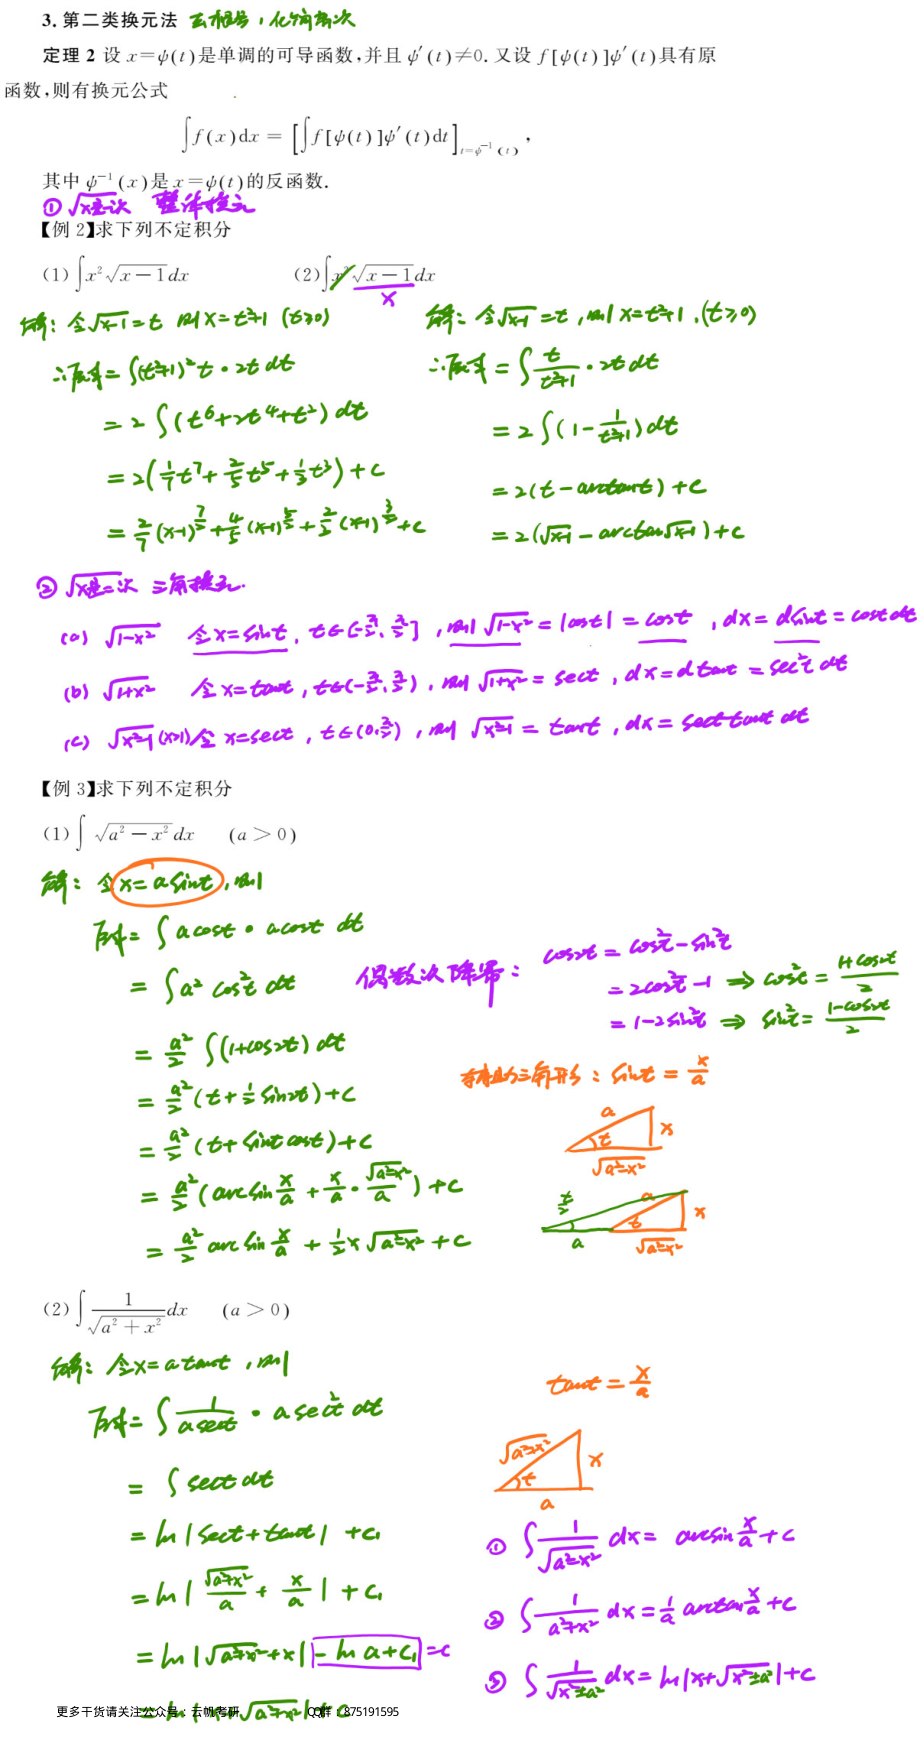 3. 第二类换元法 去根号，化简高次
定理 2 设 x=ψ(t)是单调的可导函数,并且 ψ′(t)≠0. 又设 f[ψ(t)]ψ′(t)具有原
函数,则有换元公式
∫f(x)dx = [∫f[ψ(t)]ψ′(t)dt]_{t=ψ⁻¹(t)},
其中 ψ⁻¹(x)是 x=ψ(t)的反函数.
① √x是一次 整体换元
【例 2】求下列不定积分
(1)∫x²√(x−1)dx (2)∫x²√(x−1)dx
x
解: 令√(x-1)=t 则x=t²+1 (t≥0)
∴原式=∫(t²+1)²t·2t dt
=2∫(t⁶+2t⁴+t²)dt
=2(1/7 t⁷+2/5 t⁵+1/3 t³)+C
=2/7(x-1)^{7/2}+4/5(x-1)^{5/2}+2/3(x-1)^{3/2}+C
解: 令√(x-1)=t,则x=t²+1.(t≥0)
∴原式=∫t/(t²+1)·2t dt
=2∫(1-1/(t²+1))dt
=2(t-arctan t)+C
=2(√(x-1)-arctan√(x-1))+C
② √x是二次 三角换元.
(a) √(1-x²) 令x=sint, t∈[-π/2,π/2],则√(1-x²)=|cost|=cost,dx=dsint=costdt
(b) √(1+x²) 令x=tant,t∈(-π/2,π/2),则√(1+x²)=sect,dx=dtant=sec²t dt
(c) √(x²-1)(x>1)令x=sect,t∈(0,π/2),则√(x²-1)=tant,dx=sect tant dt
【例 3】求下列不定积分
(1)∫√(a²−x²)dx (a>0)
解: 令x=asint,则
原式=∫acost·acost dt
=∫a²cos²t dt
=a²/2∫(1+cos2t)dt
=a²/2(t+1/2 sin2t)+C
=a²/2(t+sintcost)+C
=a²/2(arcsin x/a+x/a·√(a²-x²)/a)+C
=a²/2 arcsin x/a+1/2 x√(a²-x²)+C
偶数次降幂: cos2t=cos²t-sin²t
=2cos²t-1 ⇒ cos²t=(1+cos2t)/2
=1-2sin²t ⇒ sin²t=(1-cos2t)/2
三角形: sint=x/a
a
t
x
√(a²-x²)
t/2
a
t
x
a
√(a²-x²)
(2)∫1/√(a²+x²)dx (a>0)
解: 令x=atant,则
原式=∫1/(asect)·asec²t dt
=∫sectdt
=ln|sect+tant|+C₁
=ln|√(a²+x²)/a+x/a|+C₁
=ln|√(a²+x²)+x|-ln a+C₁=C
tant=x/a
√(a²+x²)
x
t
a
① ∫1/√(a²-x²)dx=arcsin x/a+C
② ∫1/(a²+x²)dx=1/a arctan x/a+C
③ ∫1/√(x²±a²)dx=ln|x+√(x²±a²)|+C
更多干货请关注公众号：云帆考研 QQ群：875191595